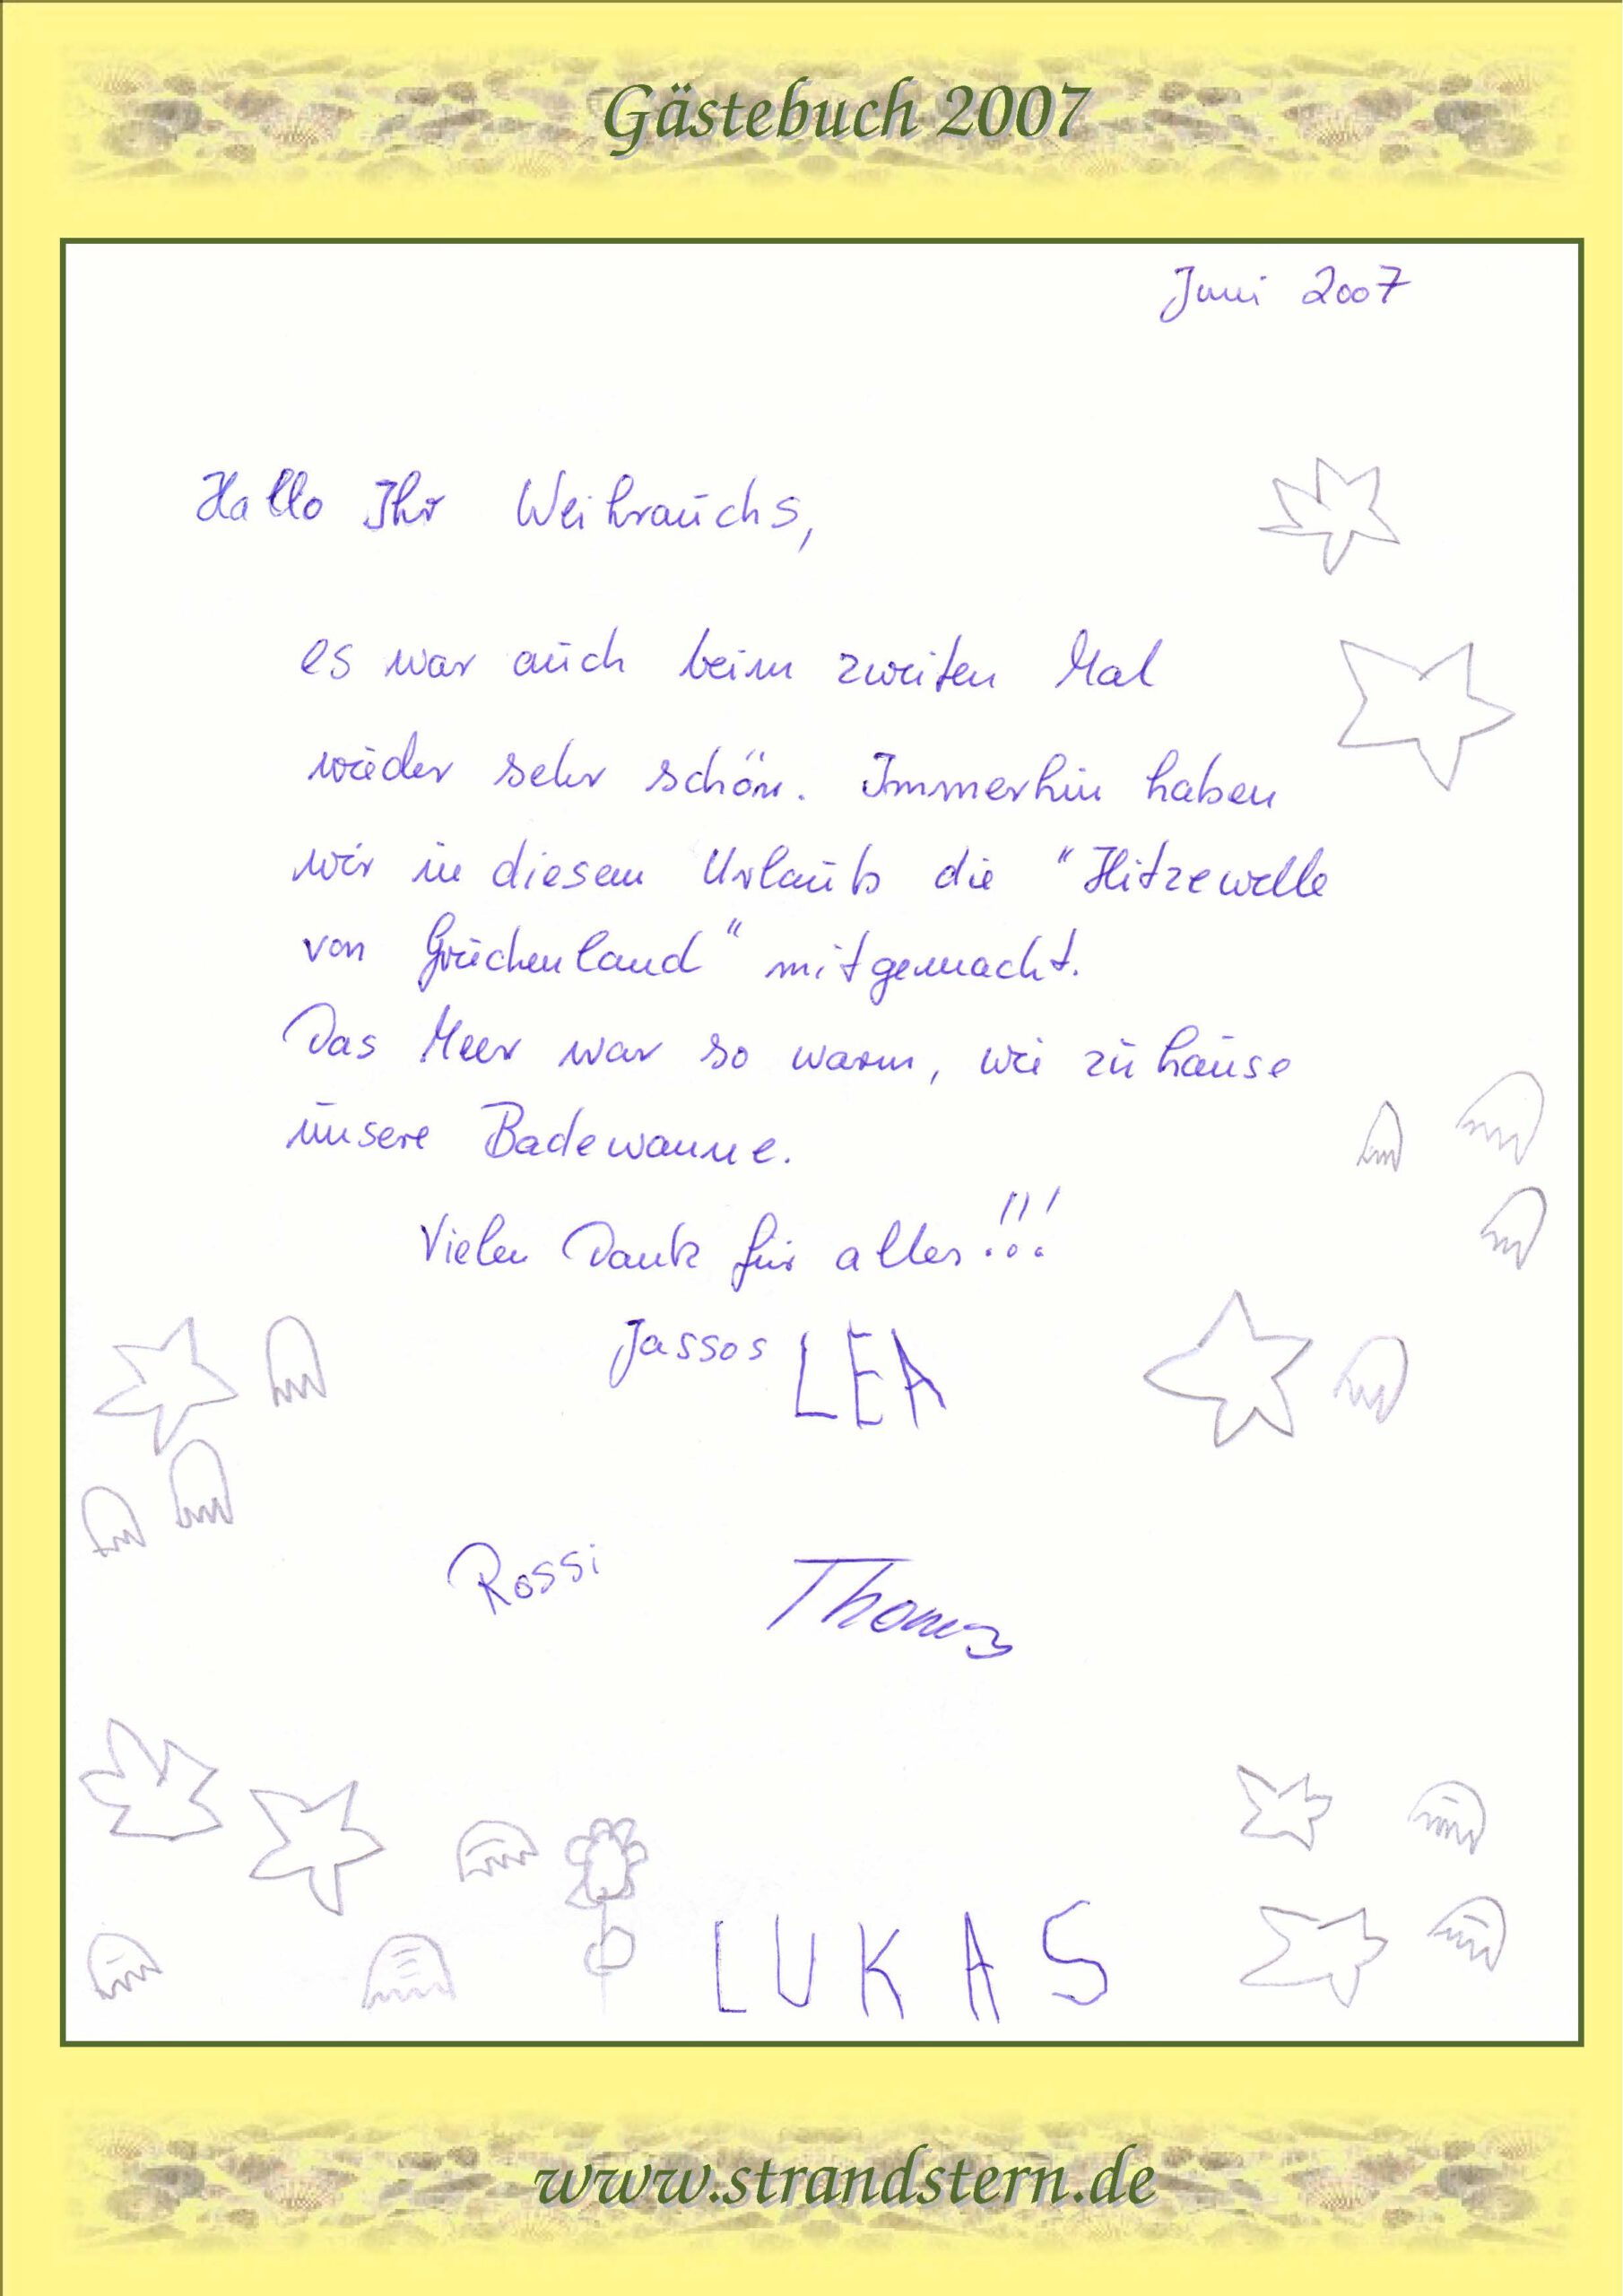 Gästebuch 2007
Juni 2007
Hallo Ihr Weihrauchs,
es war auch beim zweiten Mal
wieder sehr schön. Immerhin haben
wir in diesem Urlaub die "Hitzewelle
von Griechenland" mitgemacht.
Das Meer war so warm, wie zuhause
unsere Badewanne.
Vielen Dank für alles!!!
Jassos LEA
Rossi Thomas
LUKAS
www.strandstern.de